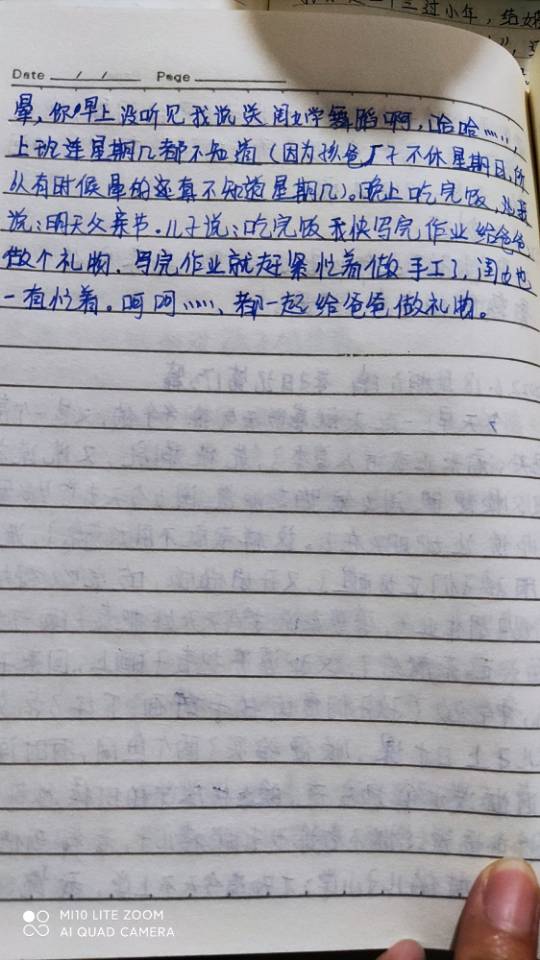 二三过小年，给
Date / / Page
晕，你早上没听见我说送闺女学舞蹈啊，哈哈……，
上班连星期几都不知道（因为孩爸厂子不休星期日，所
以有时候晕的还真不知道星期几）。晚上吃完饭，
说：明天父亲节。儿子说：吃完饭我快写完作业给爸爸
做个礼物，写完作业就赶紧忙着做手工了，闺女也
一有忙着。呵呵……，都一起给爸爸做礼物。
MI10 LITE ZOOM
AI QUAD CAMERA